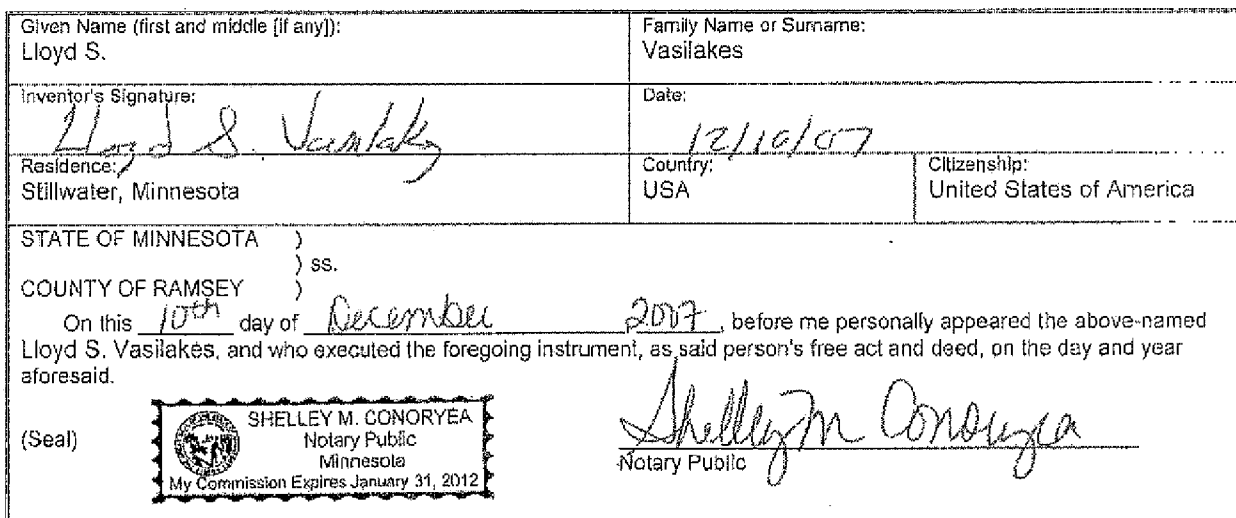 Given Name (first and middle [if any]):
Lloyd S.
Family Name or Surname:
Vasilakes
Inventor's Signature:
Lloyd S. Vasilakes
Date:
12/10/07
Residence:
Stillwater, Minnesota
Country:
USA
Citizenship:
United States of America
STATE OF MINNESOTA )
) ss.
COUNTY OF RAMSEY )
On this 10th day of December 2007, before me personally appeared the above-named
Lloyd S. Vasilakes, and who executed the foregoing instrument, as said person's free act and deed, on the day and year
aforesaid.
(Seal)
SHELLEY M. CONORYEA
Notary Public
Minnesota
My Commission Expires January 31, 2012
Shelley M Conoryea
Notary Public